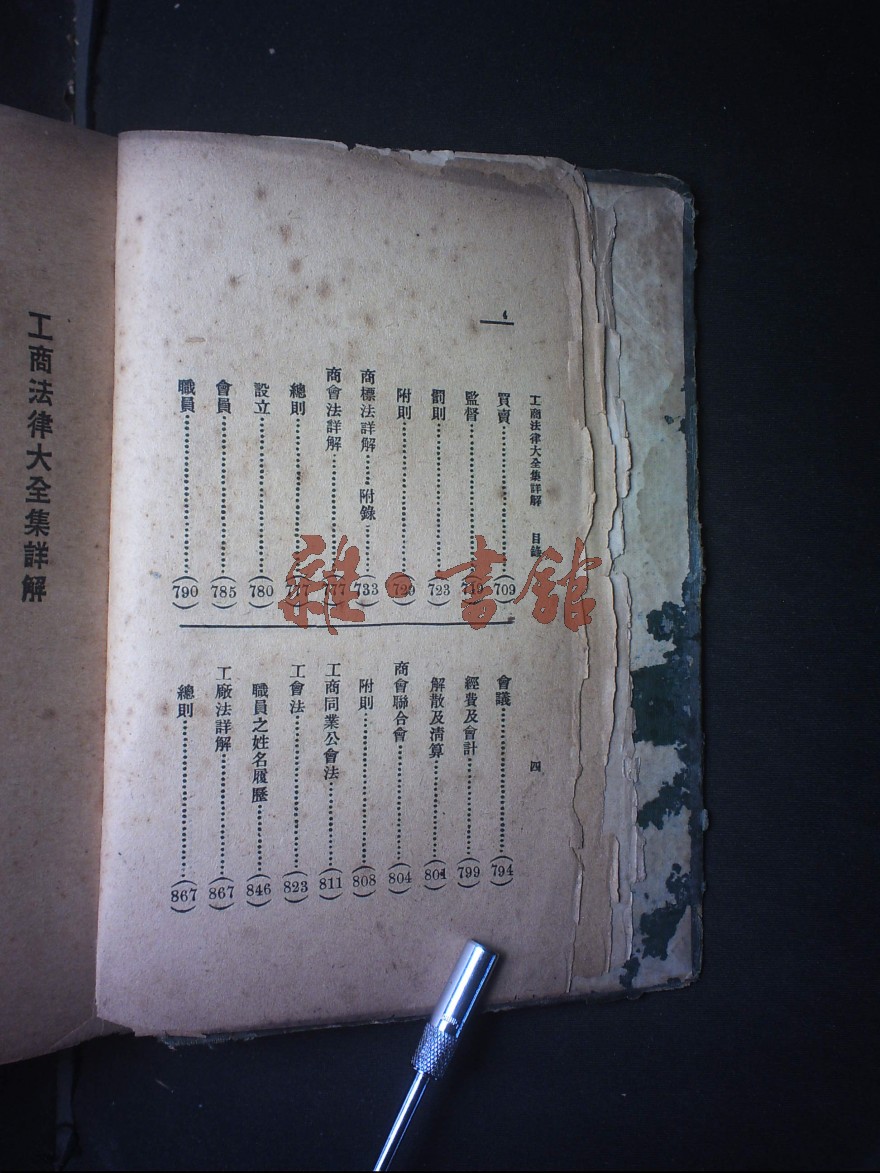 工商法律大全集詳解 目錄 四
買賣(709)
監督(719)
罰則(723)
附則(729)
商標法詳解 附錄(733)
商會法詳解(777)
總則(777)
設立(780)
會員(785)
職員(790)
會議(794)
經費及會計(799)
解散及清算(801)
商會聯合會(804)
附則(808)
工商同業公會法(811)
工會法(823)
職員之姓名履歷(846)
工廠法詳解(867)
總則(867)
工商法律大全集詳解
雜·書館